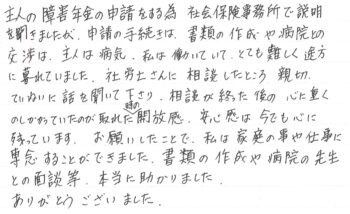 主人の障害年金の申請をする為 社会保険事務所で説明
を聞きましたが、申請の手続きは、書類の作成や病院との
交渉は、主人は病気、私は働いていて、とても難しく途方
に暮れていました。社労士さんに相談したところ 親切、
ていねいに話を聞いて下さり、相談が終った後の 心に重く
のしかかっていたのが取れた時の開放感、安心感は今でも心に
残っています。お願いしたことで、私は家庭の事や仕事に
専念することができました。書類の作成や病院の先生
との面談等、本当に助かりました。
ありがとうございました。